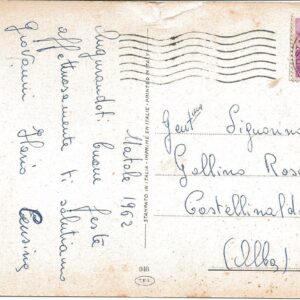 Natale 1962
Augurandoti buone feste
affettuosamente ti salutiamo
Giovanni Ilario
STAMPATO IN ITALIA - IMPRIMÉ EN ITALIE - PRINTED IN ITALY
Gent.ma Signorina
Gallino Rosa
Castellinaldo
(Alba)